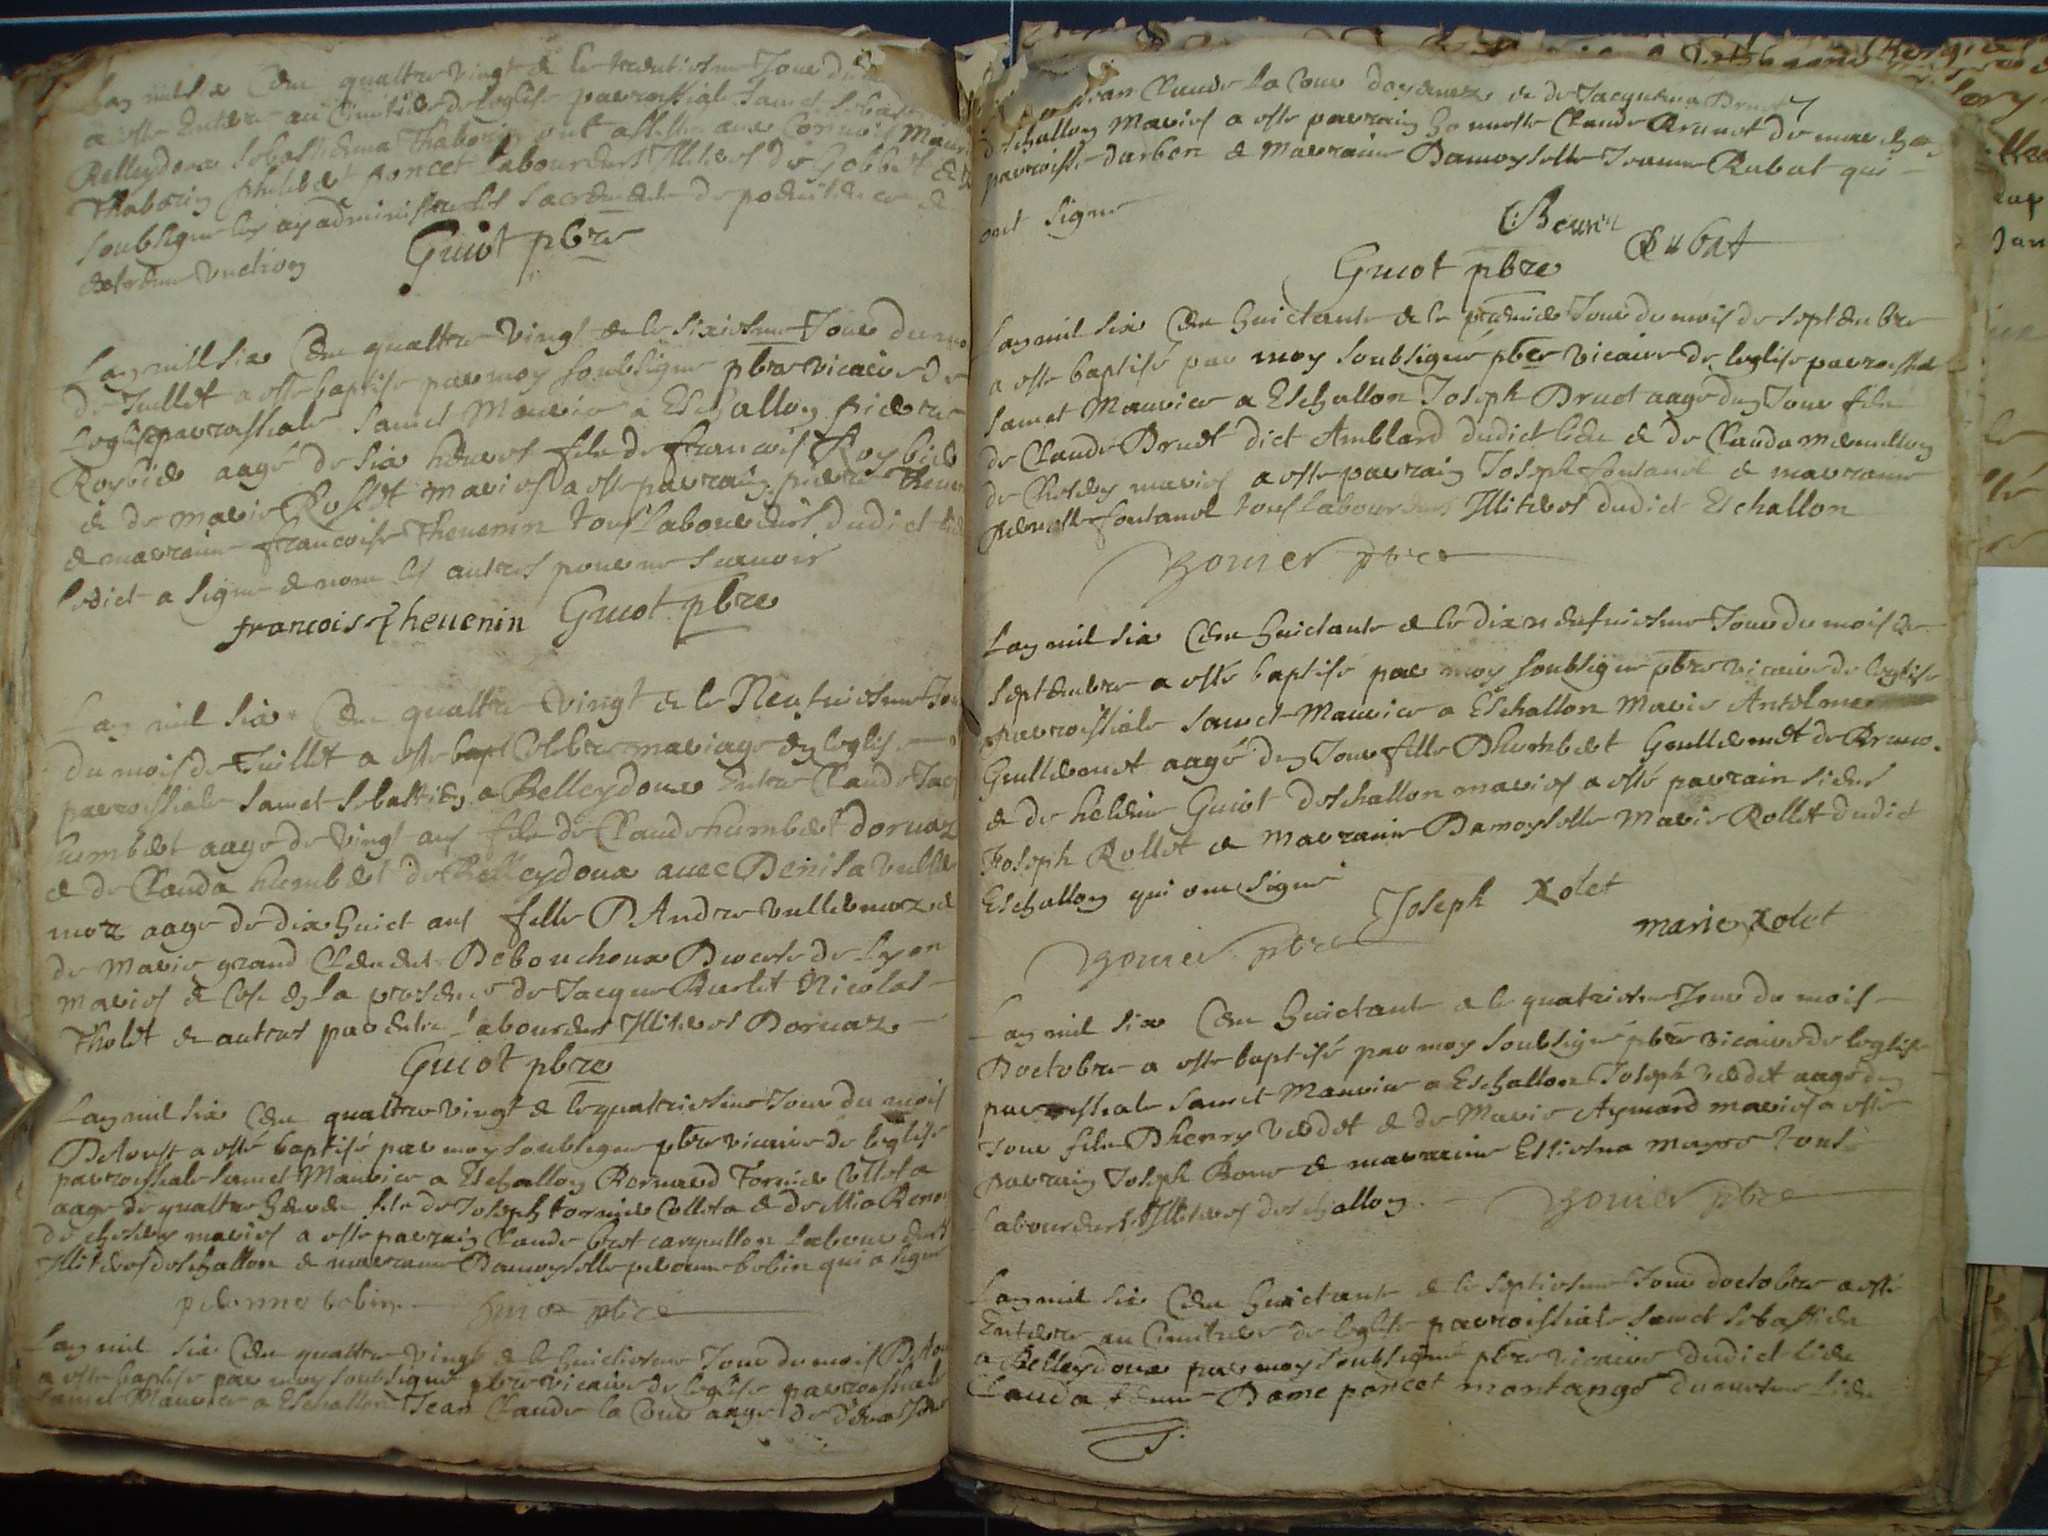 Lan mil six Cens quattre vingt & le trentiesme Jour du
a este Enterre au Cimitiere de leglise parrossiale sainct sebast
Belleydoux sebastienna Thaborin ont assiste aux Convois Mauri
Thaborin philibert poncet Labourdeurs Illiteres de Gobbet &
soubsigne les ay administres les sacrements de penitence &
dextreme unction Guiot pbre
Lan mill six Cens quattre vingt & le sixiesme Jour du mo
de Juillet a este baptise par moy soubsigne pbre vicaire de
Leglise parrossiale sainct Maurice a Eschallon pierre
Roybier aagé de six heures fils de francois Roybier
& de marie Rosset maries a este parrain pierre Theve
& marraine francoise Thevenin tous Laboureurs dudict lieu
ledict a signe & non les autres pour ne scavoir
francois Thevenin Guiot pbre
Lan mil six Cens quattre vingt & le Neufviesme Jou
du mois de Juillet a este bapt Celebre mariage en leglise
parroissiale sainct sebastien a Belleydoux Entre Claude Jac
humbert aage de vingt ans fils de Claude humbert dorvaz
& de Clauda humbert de Belleydoux avec Denisa vuille
moz aage de dix huict ans fille D Andre vuillermoz &
de Marie grand Clement Debouchoux Diocese de Lyon
maries & Ce en la presence de Jacques Burlet Nicolas
Tholet & autres parents Labourdeurs Illiteres Dorvaz
Guiot pbre
Lan mil six Cens quattre vingt & le quatriesme Jour du mois
Daoust a esté baptisé par moy soubsigne pbre vicaire de leglise
parrossiale sainct Maurice a Eschallon Bernard Tornier Colleta
aage de quattre heures fils de Joseph Tornier Colleta & de Mia
de maries a este parrain Claude brot carpillon Laboureurs
Illiteres deschallon & marraine Damoyselle pernonne bobin qui a signe
pernonne bobin Guiot pbre
Lan mil six Cens quattre vingt & le huictiesme Jour du mois Daou
a este baptise par moy soubsigne pbre vicaire de leglise parrossiale
sainct Maurice a Eschallon Jean Claude la Cour aage de deux Jours
Jean Claude la Cour & de Jacquema Brunet
deschallon Maries a este parrain honneste Claude Brunet de
parroisse darbon & Marraine Damoyselle Jeanne Rubat qui
ont signe
Brunet Rubat
Guiot pbre
Lan mil six Cens huictante & le premier Jour du mois de septembre
a este baptisé par moy soubsigné pbre vicaire de leglise parrossiale
sainct Maurice a Eschallon Joseph Bruet aage dun Jour fils
de Claude Bruet dict Amblard dudict lieu & de Clauda
de maries a este parrain Joseph fontanel & marraine
pernette fontanel tous Labourdeurs Illiteres dudict Eschallon
Bonier pbre
Lan mil six Cens huictante & le dix neufviesme Jour du mois de
septembre a esté baptisé par moy soubsigne pbre vicaire de leglise
parroissiale sainct Maurice a Eschallon Marie Anthelmea
Guillermet aagé dun Jour fille Dhumbert Guillermet
& de helene Guiot deschallon maries a esté parrain sieur
Joseph Rollet & marraine Damoyselle Marie Rollet dudict
Eschallon qui ont signé
Joseph Rolet
Bonier pbre marie Rolet
Lan mil six Cens huictante & le quatriesme Jour du mois
Doctobre a este baptisé par moy soubsigné pbre vicaire de leglise
parrossiale sainct Maurice a Eschallon Joseph verdet aage dun
Jour fils Dhenry verdet & de Marie Aymard maries a este
parrain Joseph & marraine Estiena tous
Labourdeurs Illiteres deschallon Bonier pbre
Lan mil six Cens huictante & le septiesme Jour doctobre a esté
Enterre au Cimitiere de leglise parroissiale sainct sebastien
a Belleydoux par moy soubsigné pbre vicaire dudict lieu
Clauda femme poncet montange du mesme lieu